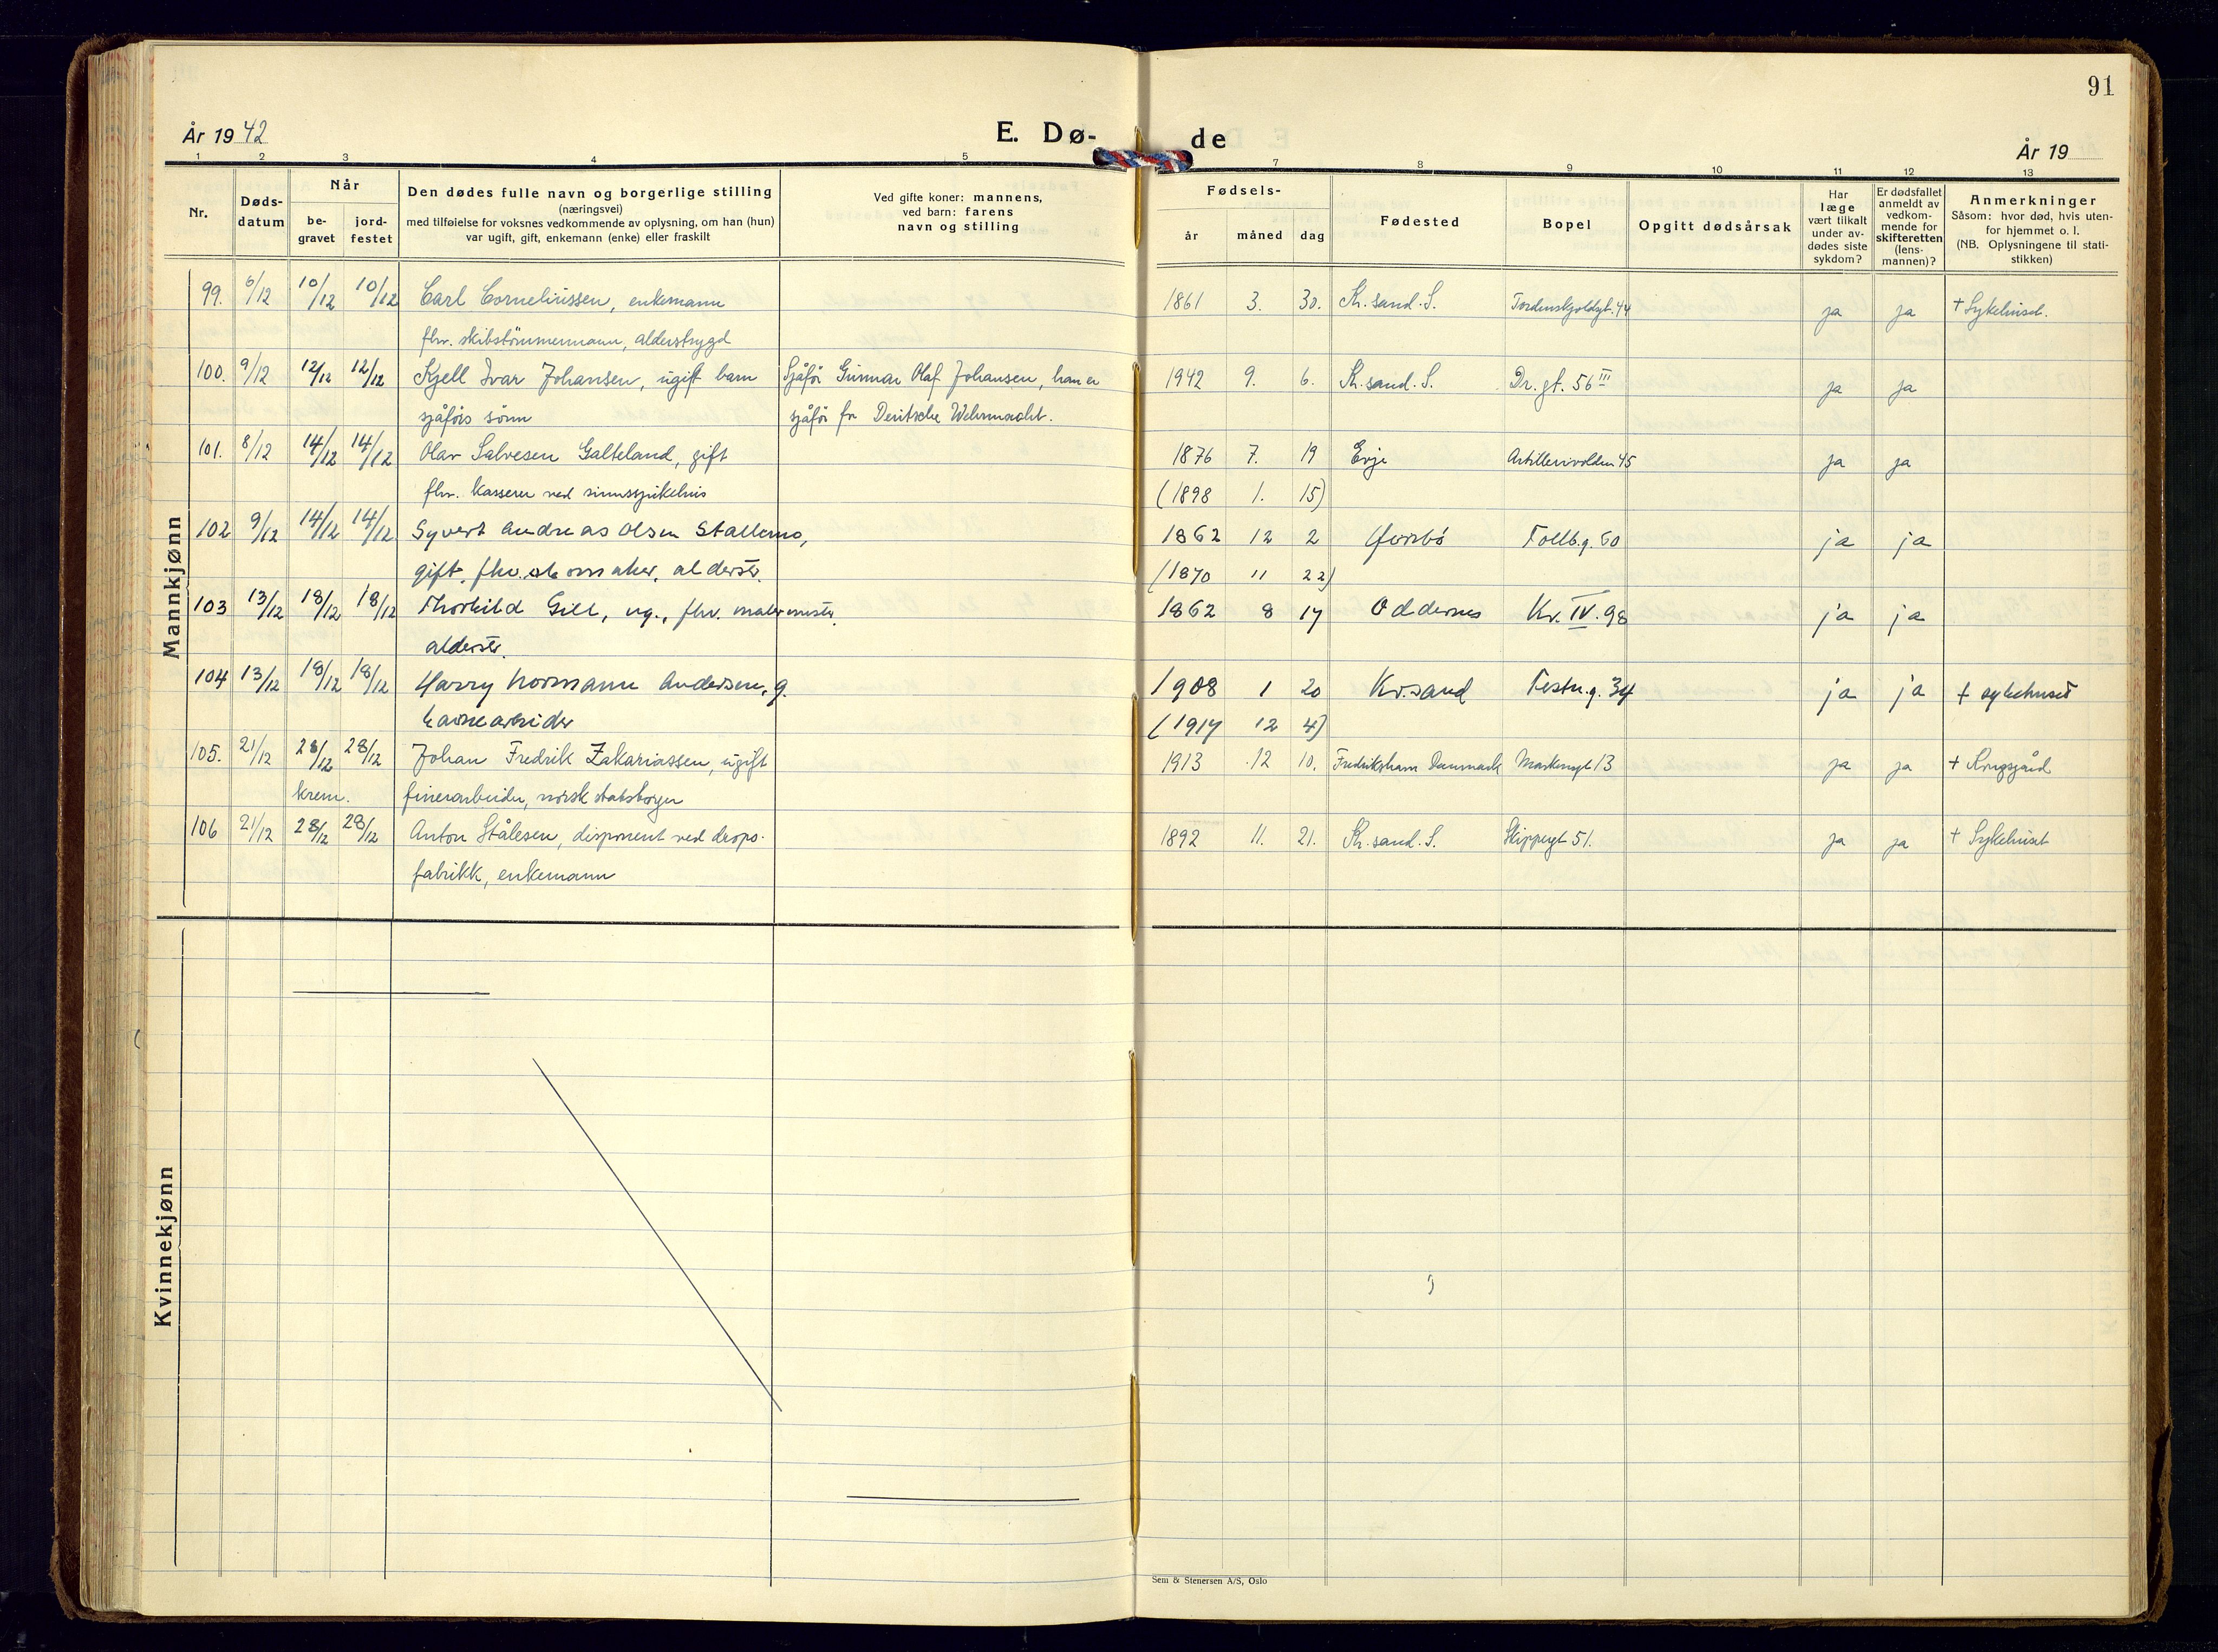 91
År 1942 E. Dø- de År 19
1 2 3 4 5 7 8 9 10 11 12 13
Nr. Døds-datum Når be-gravet jord-festet
Den dødes fulle navn og borgerlige stilling
(næringsvei)
med tilføielse for voksnes vedkommende av oplysning, om han (hun)
var ugift, gift, enkemann (enke) eller fraskilt
Ved gifte koner: mannens,
ved barn: farens
navn og stilling
Fødsels-
år måned dag
Fødested Bopel Opgitt dødsårsak
Har
læge
vært tilkalt
under av-
dødes siste
sykdom?
Er dødsfallet
anmeldt av
vedkom-
mende for
skifteretten
(lens-
mannen)?
Anmerkninger
Såsom: hvor død, hvis uten-
for hjemmet o. l.
(NB. Oplysningene til stati-
stikken)
Mannkjønn
99. 6/12 10/12 10/12 Carl Corneliussen, enkemann 1861 3. 30. Kr. sand. S. Tordenskjoldsgt. 44 ja ja + Sykehuset.
fhv. skibstømmermann, alderstrygd
100. 9/12 12/12 12/12 Kjell Ivar Johansen, ugift barn Sjåfør Gunnar Olaf Johansen, han er 1942 9. 6. Kr. sand. S. Dr. gt. 56 III ja ja
sjåførs sønn sjåfør for Deutsche Wehrmacht.
101. 8/12 14/12 14/12 Olav Salvesen Galteland, gift 1876 7. 19 Evje Artillerivolden 45 ja ja
fhv. kasserer ved sinnssykehus (1898 1. 15)
102 9/12 14/12 14/12 Syvert Andreas Olsen Stallemo, 1862 12 2 Tollb.g. 60 ja ja
gift, fhv. skomaker, alderstr. (1870 11 22)
103 13/12 18/12 18/12 Thorkild Gill, ug., fhv. malermester, 1862 8 17 Oddernes Kv. IV. 98 ja ja
alderstr.
104 13/12 18/12 18/12 Harry Normann Andersen, g. 1908 1 20 Kr.sand Festn.g. 34 ja ja + sykehuset
havnearbeider (1917 12 4)
105. 21/12 28/12 28/12 Johan Fredrik Zakariassen, ugift 1913 12 10. Fredrikshavn Danmark Markensgt 13 ja ja + Kongsgård
krem. finerarbeider, norsk statsborger
106 21/12 28/12 28/12 Anton Stålesen, disponent ved drops- 1892 11. 21. Kr. sand. S. Skippergt 51. ja ja + Sykehuset
fabrikk, enkemann
Kvinnekjønn
Sem & Stenersen A/S, Oslo